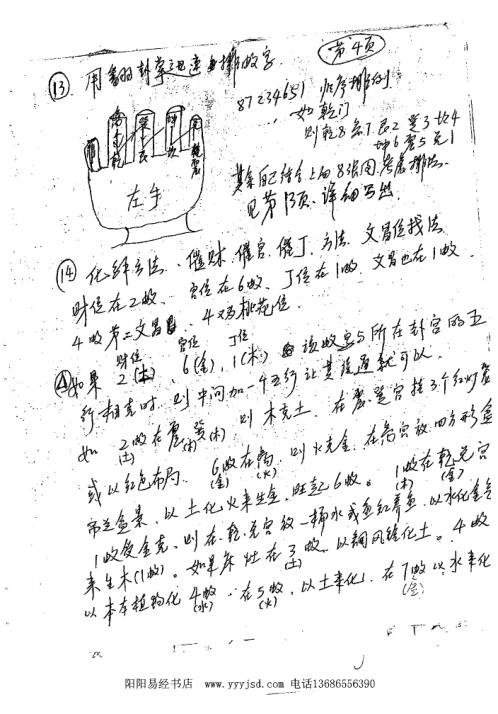 第4页
⑬ 用 卦掌 迅速 排 数字
87234651 顺序排列
如乾门
则乾8 兑7 艮2 巽3 坎4
坤6 震5 1
其余自己结合上面8张图考虑排法.
见第13页、详细写出.
左手
⑭ 化解方法、催财、催官、催丁、方法、文昌位找法
财位在2数、官位在6数、丁位在1数、文昌也在1数.
4数第二文昌、4为桃花位.
财位 官位 丁位
如果 2(土)、6(金)、1(木) 该数字与所在卦宫的五
行相克时、则中间加一个五行让其 通就可以.
如 2数在震巽 则木克土、在震巽宫挂3个红灯笼
(土) (木)
或以红色布局、6数在离、则火克金、在离宫放四方形盒
(金) (火)
盆景、以土化火来生金、旺起6数。1数在乾兑宫
(木) (金)
1数受金克、则在乾兑宫放一桶水或鱼缸养鱼、以水化金
来生木(1数)。如果灶在3数、以铜风铃化土。4数
(土)
以木本植物化 4数 在5数、以土来化、在7数以水来化
(水) (火) (金)
阳阳易经书店 www.yyyjsd.com 电话13686556390